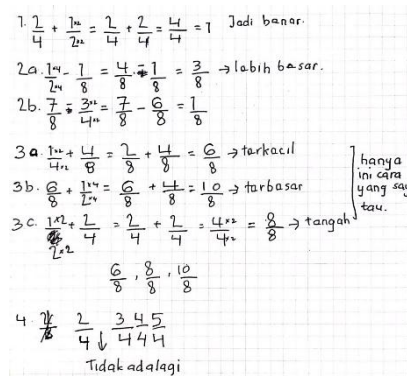 1. 2/4 + 1×2/2×2 = 2/4 + 2/4 = 4/4 = 1 Jadi benar.
2a. 1×4/2×4 - 1/8 = 4/8 - 1/8 = 3/8 → lebih besar.
2b. 7/8 - 3×2/4×2 = 7/8 - 6/8 = 1/8
3a. 1×2/4×2 + 4/8 = 2/8 + 4/8 = 6/8 → terkecil
3b. 6/8 + 1×4/2×4 = 6/8 + 4/8 = 10/8 → terbesar
3c. 1×2/2×2 + 2/4 = 2/4 + 2/4 = 4×2/4×2 = 8/8 → tengah
hanya
ini cara
yang say
tau.
6/8, 8/8, 10/8
4. 2/4 3/4 4/4 5/4
↓
Tidak ada lagi